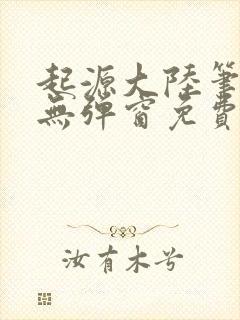 起源大陸筆
無彈窗免費
汝有木兮